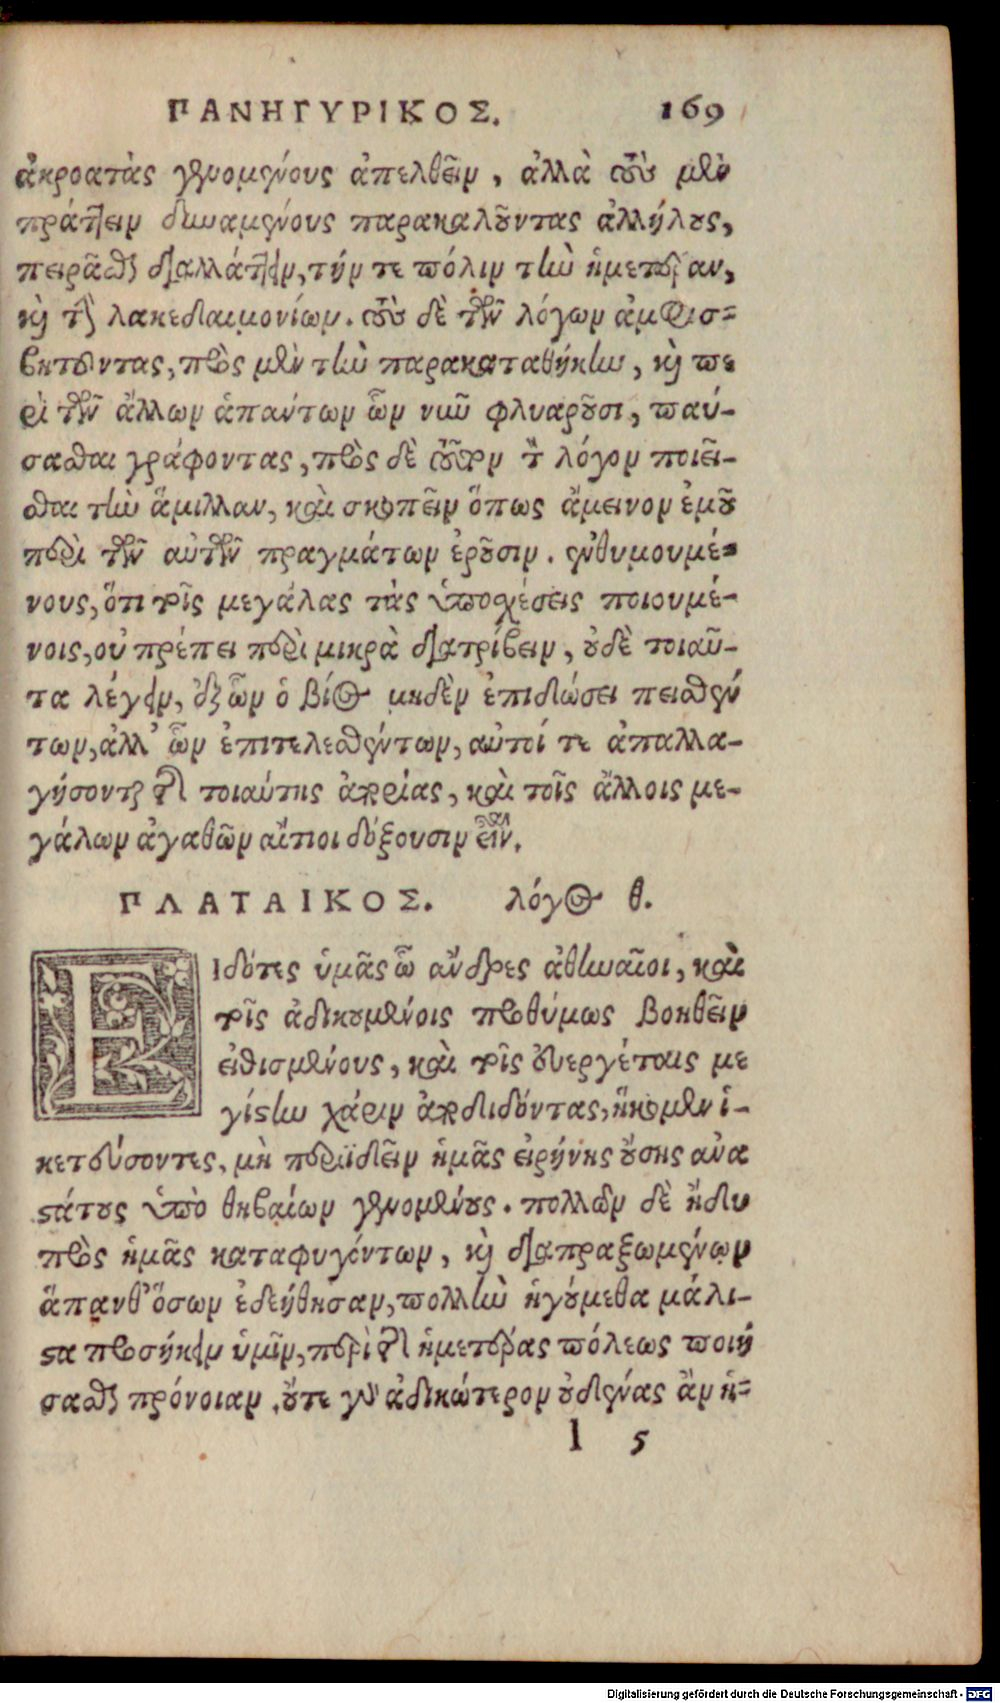 ΠΑΝΗΓΥΡΙΚΟΣ. 169
ἀκροατὰς γενομένους ἀπελθεῖν, ἀλλὰ τοὺς μὲν
πράττειν δυναμένους παρακαλοῦντας ἀλλήλους,
πειρᾶσθαι διαλλάττειν, τήν τε πόλιν τὴν ἡμετέραν,
καὶ τὴν λακεδαιμονίων. τοὺς δὲ τῶν λόγων ἀμφισ-
βητοῦντας, πρὸς μὲν τὴν παρακαταθήκην, καὶ πε
ρὶ τῶν ἄλλων ἁπάντων ὧν νῦν φλυαροῦσι, παύ-
σασθαι γράφοντας, πρὸς δὲ τοῦτον τὸν λόγον ποιεῖ-
σθαι τὴν ἅμιλλαν, καὶ σκοπεῖν ὅπως ἄμεινον ἐμοῦ
περὶ τῶν αὐτῶν πραγμάτων ἐροῦσιν. ἐνθυμουμέ-
νους, ὅτι τοῖς μεγάλας τὰς ὑποσχέσεις ποιουμέ-
νοις, οὐ πρέπει περὶ μικρὰ διατρίβειν, οὐδὲ τοιαῦ-
τα λέγειν, ἐξ ὧν ὁ βίος μηδὲν ἐπιδώσει πεισθέν
των, ἀλλ' ὧν ἐπιτελεσθέντων, αὐτοί τε ἀπαλλα-
γήσονται τῆς τοιαύτης ἀπορίας, καὶ τοῖς ἄλλοις με-
γάλων ἀγαθῶν αἴτιοι δόξουσιν εἶναι.
ΠΛΑΤΑΙΚΟΣ. λόγος θ.
ΕΙδότες ὑμᾶς ὦ ἄνδρες ἀθηναῖοι, καὶ
τοῖς ἀδικουμένοις προθύμως βοηθεῖν
εἰθισμένους, καὶ τοῖς εὐεργέταις με
γίστην χάριν ἀποδιδόντας, ἥκομεν ἱ-
κετεύσοντες, μὴ περιϊδεῖν ἡμᾶς εἰρήνης οὔσης ἀνα
στάτους ὑπὸ θηβαίων γενομένους. πολλῶν δὲ ἤδη
πρὸς ἡμᾶς καταφυγόντων, καὶ διαπραξωμένων
ἅπανθ' ὅσων ἐδεήθησαν, πολλὴν ἡγούμεθα μάλι-
στα προσήκειν ὑμῖν, περὶ τῆς ἡμετέρας πόλεως ποιή
σασθαι πρόνοιαν. οὔτε γὰρ ἀδικώτερον οὐδένας ἂν ἡ-
l 5
Digitalisierung gefördert durch die Deutsche Forschungsgemeinschaft - DFG